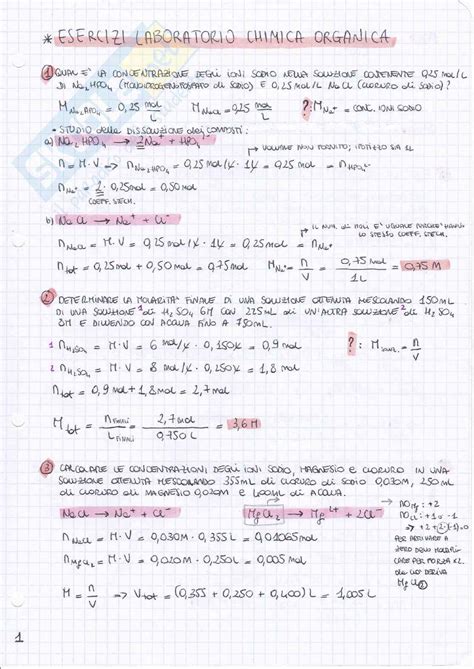 * ESERCIZI LABORATORIO CHIMICA ORGANICA
① QUAL E' LA CONCENTRAZIONE DEGLI IONI SODIO NELLA SOLUZIONE CONTENENTE 0,25 mol/L
DI Na₂HPO₄ (MONOIDROGENOFOSFATO DI SODIO) E 0,25 mol/L NaCl (CLORURO DI SODIO)?
M Na₂HPO₄ = 0,25 mol/L M NaCl = 0,25 mol/L ?: M Na⁺ = CONC. IONI SODIO
- STUDIO della DISSOLUZIONE dei COMPOSTI:
a) Na₂HPO₄ → 2Na⁺ + HPO₄²⁻
VOLUME NON FORNITO; IPOTIZZO SIA 1L
n = M·V ⇒ n Na₂HPO₄ = 0,25 mol/L · 1L = 0,25 mol = n HPO₄²⁻
n Na⁺ = 2 · 0,25 mol = 0,50 mol
COEFF. STECH.
b) NaCl → Na⁺ + Cl⁻
IL NUM. di MOLI E' UGUALE PERCHE' HANNO
LO STESSO COEFF. STECH.
n NaCl = M·V = 0,25 mol/L · 1L = 0,25 mol = n Na⁺
n tot = 0,25 mol + 0,50 mol = 0,75 mol M Na⁺ = n/V = 0,75 mol/1L = 0,75 M
② DETERMINARE LA MOLARITA' FINALE DI UNA SOLUZIONE OTTENUTA MESCOLANDO 150 mL
DI UNA SOLUZIONE¹ di H₂SO₄ 6M CON 225 mL di UN'ALTRA SOLUZIONE² di H₂SO₄
3M E DILUENDO CON ACQUA FINO A 750 mL.
1 n H₂SO₄ = M·V = 6 mol/L · 0,150 L = 0,9 mol ?: M = n/V
2 n H₂SO₄ = M·V = · 0,150 L = 1,8 mol
n tot = 0,9 mol + 1,8 mol = 2,7 mol
M tot = n FINALI/L FINALI = 2,7 mol/0,750 L = 3,6 M
③ CALCOLARE LE CONCENTRAZIONI DEGLI IONI SODIO, MAGNESIO E CLORURO IN UNA
SOLUZIONE OTTENUTA MESCOLANDO 355 mL di CLORURO DI SODIO 0,030M, 250 mL
di CLORURO DI MAGNESIO 0,020M E 400 mL di ACQUA.
NaCl → Na⁺ + Cl⁻ MgCl₂ → Mg²⁺ + 2Cl⁻
NO Mg: +2
NO Cl: +1 o -1
→ +2 + 2·(-1) = 0
n NaCl = M·V = 0,030M · 0,355 L = 0,01065 mol
PER ARRIVARE A
ZERO DEVO
CARE PER FORZA x2
da CUI DERIVA
MgCl₂
n MgCl₂ = M·V = 0,020M · 0,250 L = 0,005 mol
M = n/V ⇒ V tot = (0,355 + 0,250 + 0,400) L = 1,005 L
1